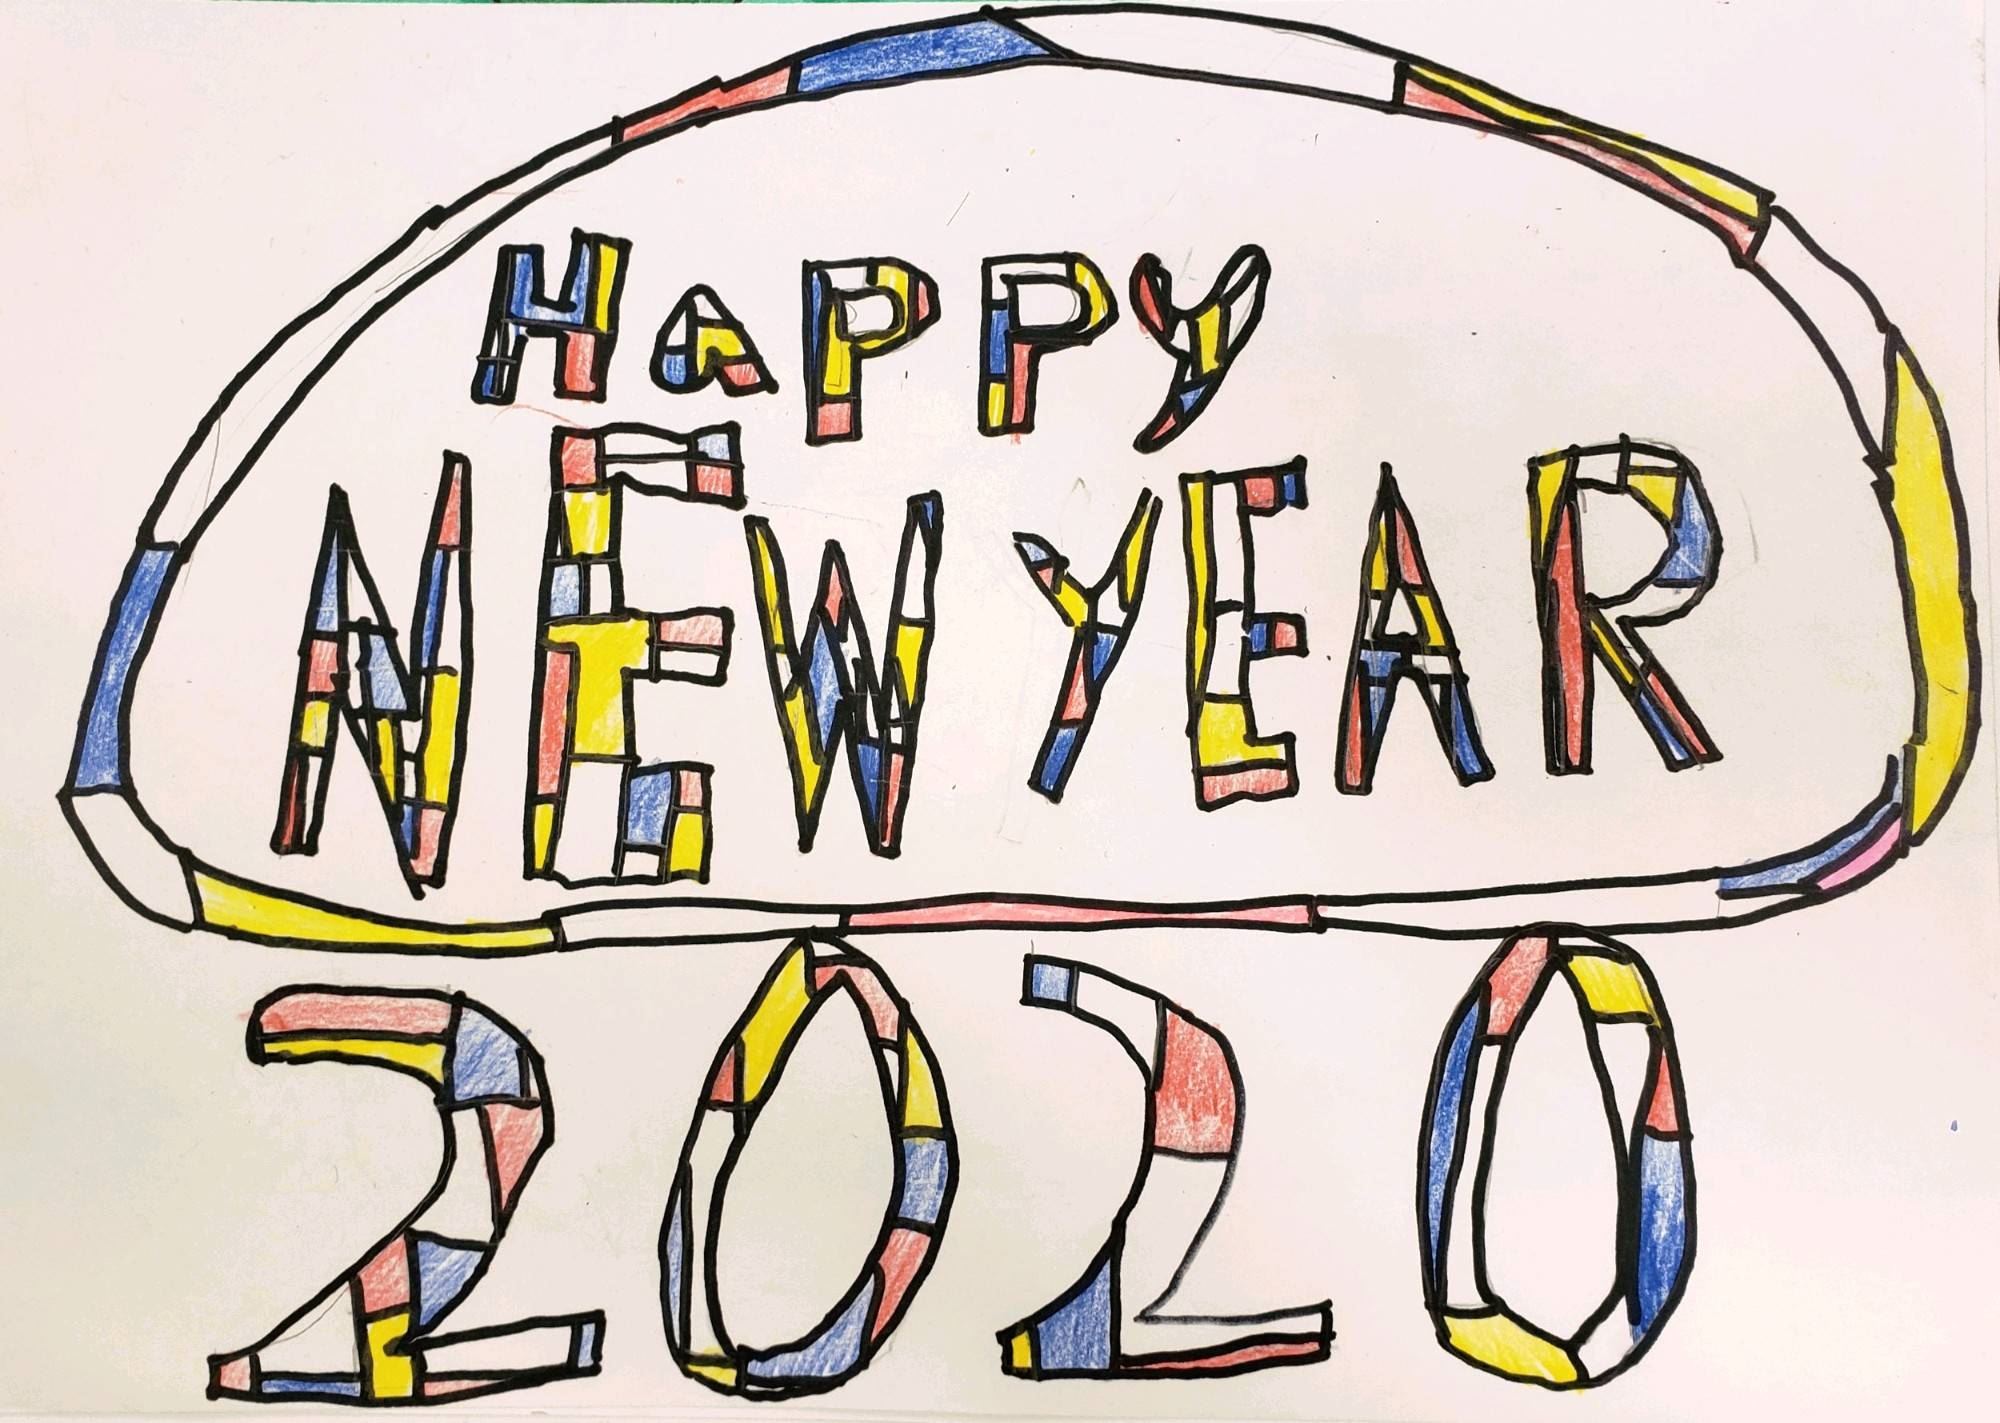 HaPPy
NEW YEAR
2020